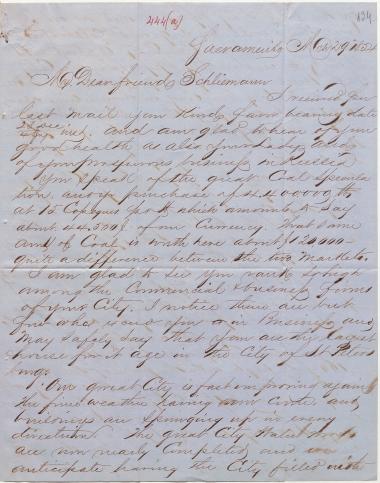 444(a)
124
Sacramento Mch 29 1854
My Dear friend Schliemann
I received your
last mail your kind favor bearing date
and am glad to hear of your
good health as also your Lady and
of your prosperous business in Russia
You speak of the great Coal specula
tion, and your purchase of 4.400.000 lb
at 10 Copeques pr lb, which amounts to say
about 44,500$ of our Currency. That same
amt of Coal is worth here about $120000 -
quite a difference between the two markets.
I am glad to see you rank so high
among the Commercial & business firms
of your City. I notice there are but
few who exceed you in Business and
may safely say that you are the largest
house for its age in the City of St Peters
burg.
Our great City is fast improving again
the fine weather having come and
buildings are springing up in every
direction. The great City Water Works
are now nearly completed, and we
anticipate having the City filled with